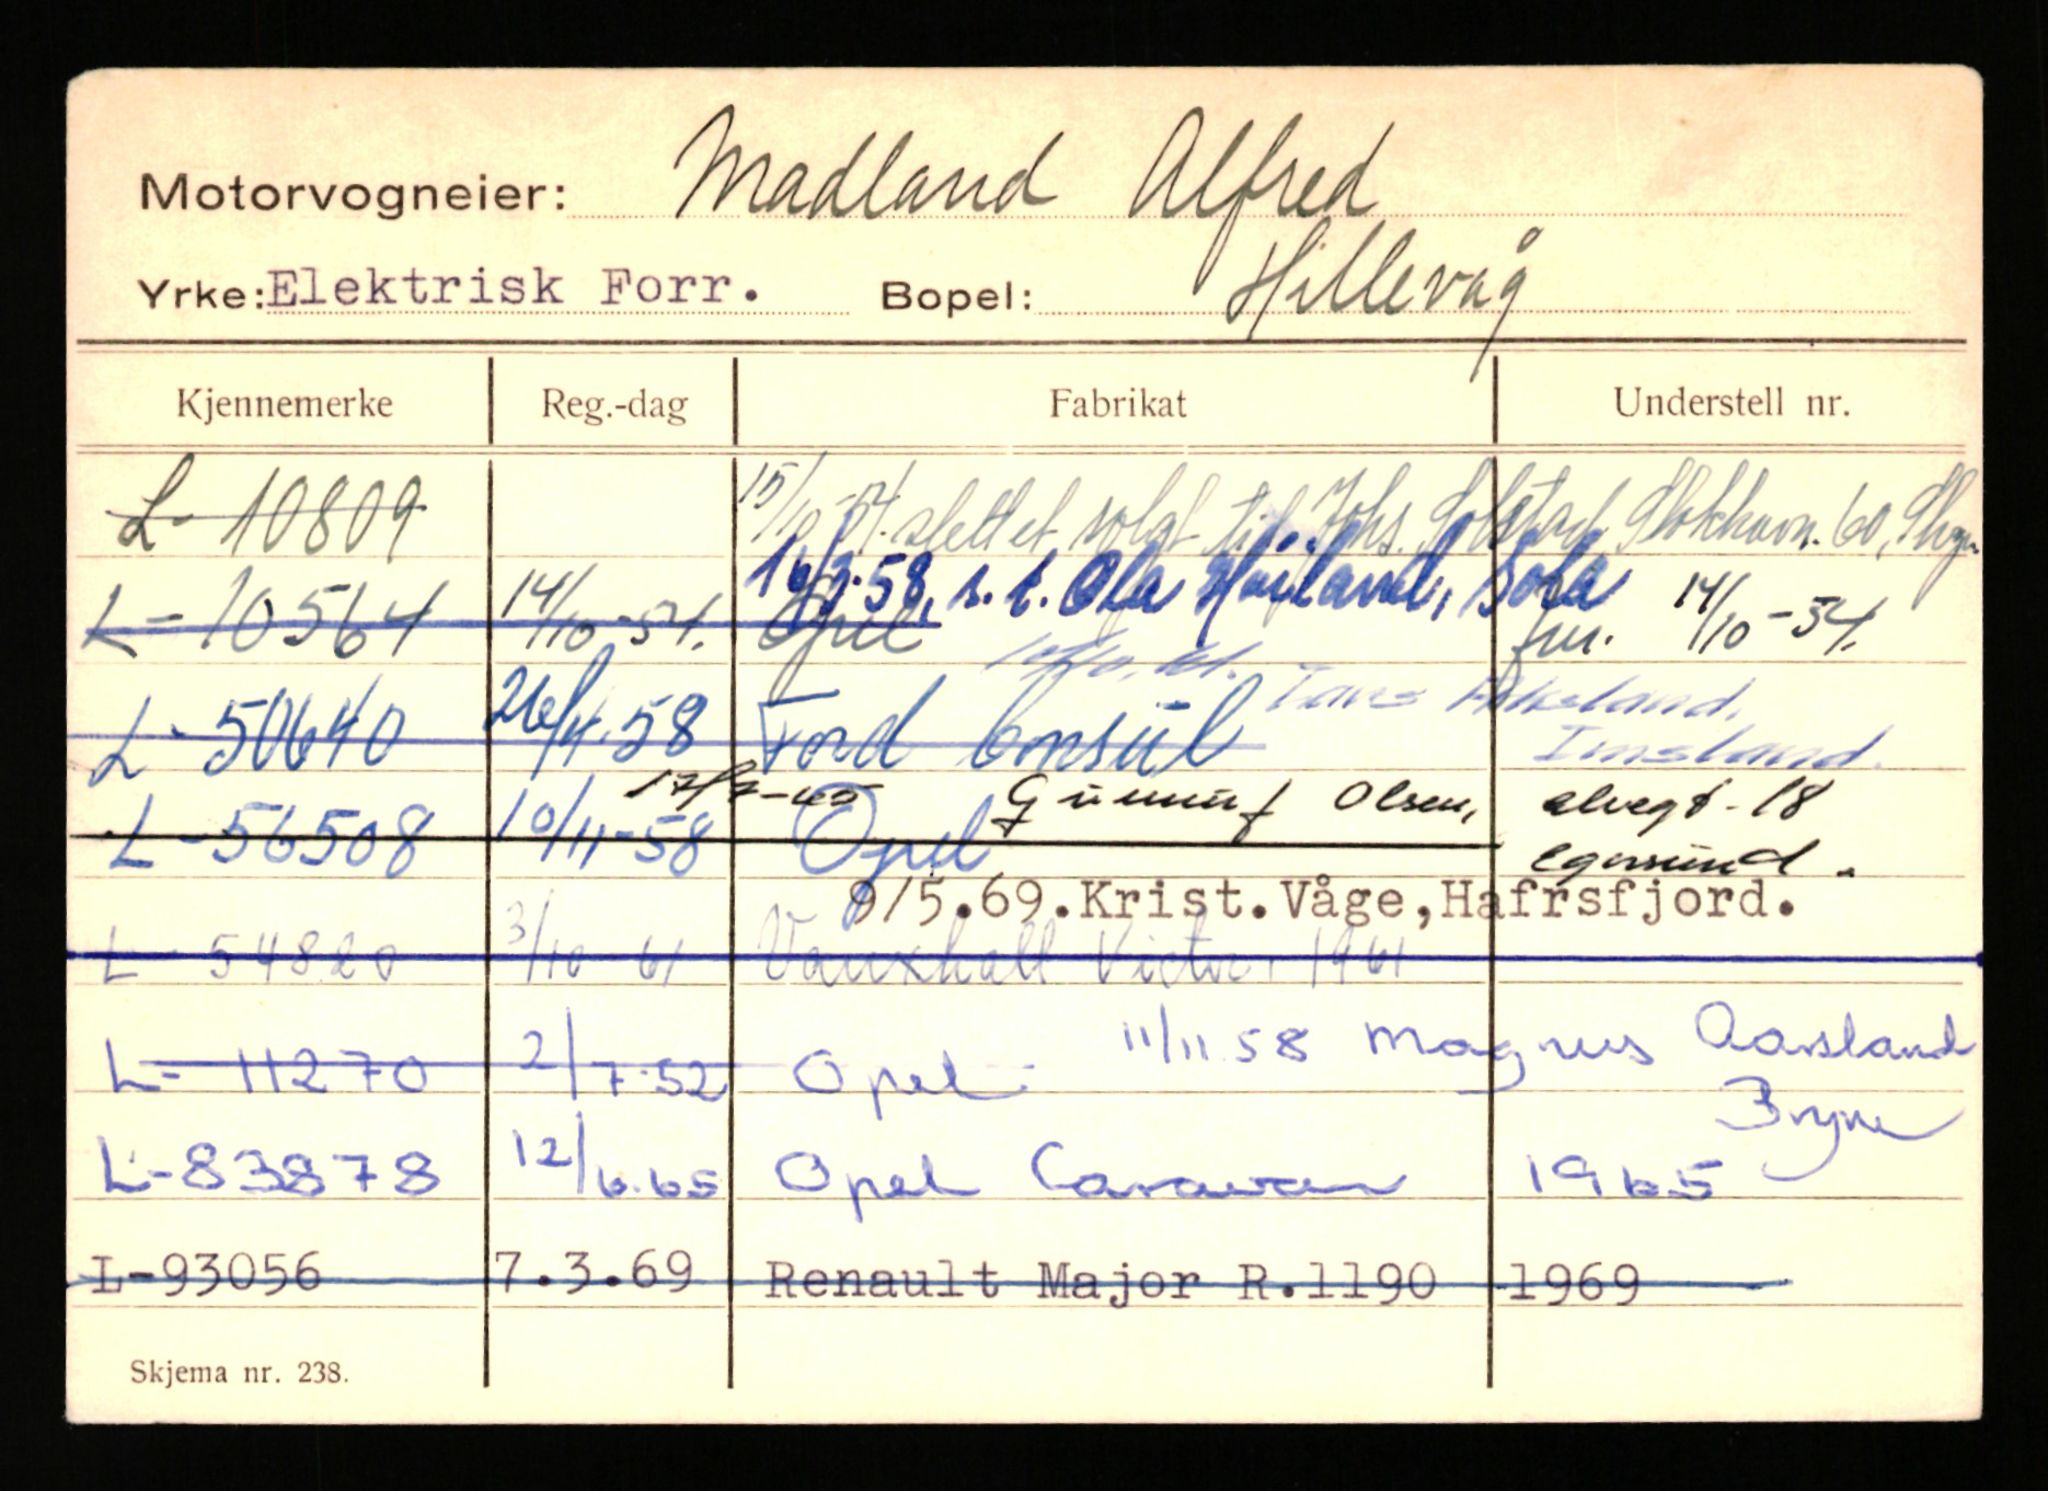 Motorvogneier: Madland Alfred
Yrke: Elektrisk Forr. Bopel: Hillevåg
Kjennemerke Reg.-dag Fabrikat Understell nr.
L- 10809 15/10-54. slettet solgt til Johs. Solstad,
16/3.58, s.t. Ola Høiland, Sola
L- 10564 14/10-54. Opel 14/10-54.
Imsland.
L- 50640 26/4.58 Ford Consul
Olsen, elvegt-18
L-56508 10/11-58 Opel Egersund.
9/5.69.Krist.Våge,Hafrsfjord.
L- 54820 3/10 61 Vauxhall Victor 1961
L- 11270 2/7.52 Opel 11/11 58 Magnus Aarsland
Bryne
L-83878 12/6.65 Opel Caravan 1965
L-93056 7.3.69 Renault Major R.1190 1969
Skjema nr. 238.